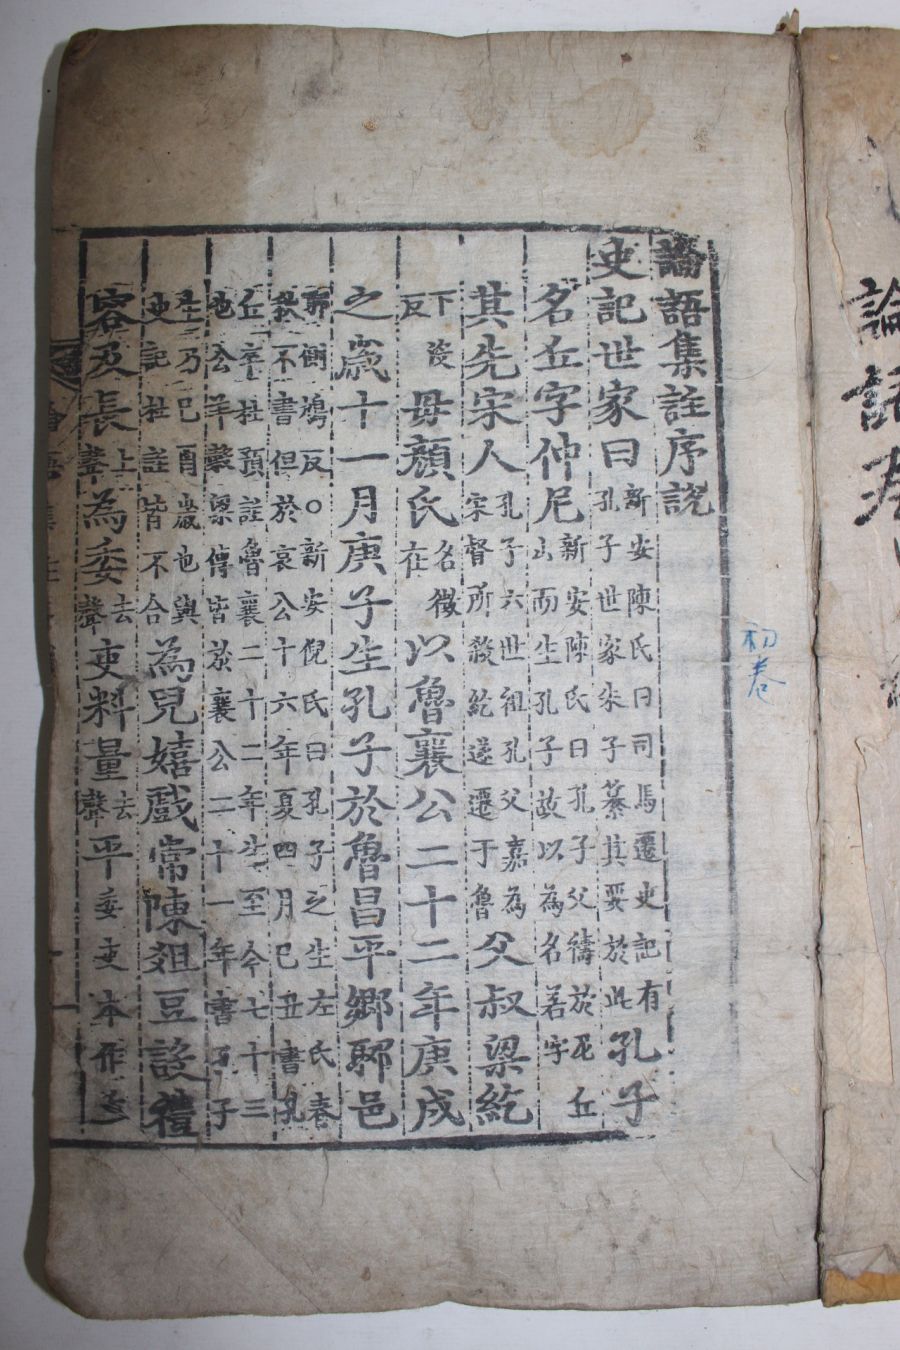 論語
初卷
論語集註序說
史記世家曰新安陳氏曰司馬遷史記有孔子世家朱子纂其要於此孔子
名丘字仲尼新安陳氏曰孔子父禱於尼丘山而生孔子故以為名若字
其先宋人孔子六世祖孔父嘉為宋督所殺紇遂遷于魯父叔梁紇
下沒反母顏氏名徵在以魯襄公二十二年庚戌
之歲十一月庚子生孔子於魯昌平鄉郰邑
郰側鳩反○新安倪氏曰孔子之生左氏春秋不書但於哀公十六年夏四月己丑書孔
丘卒杜預註魯襄二十二年生至今七十三也公羊穀梁傳皆於襄公二十一年書孔子
生乃己酉歲也與史記杜註皆不合為兒嬉戲常陳俎豆設禮
容及長上聲為委去聲吏料量去聲平委吏本作季